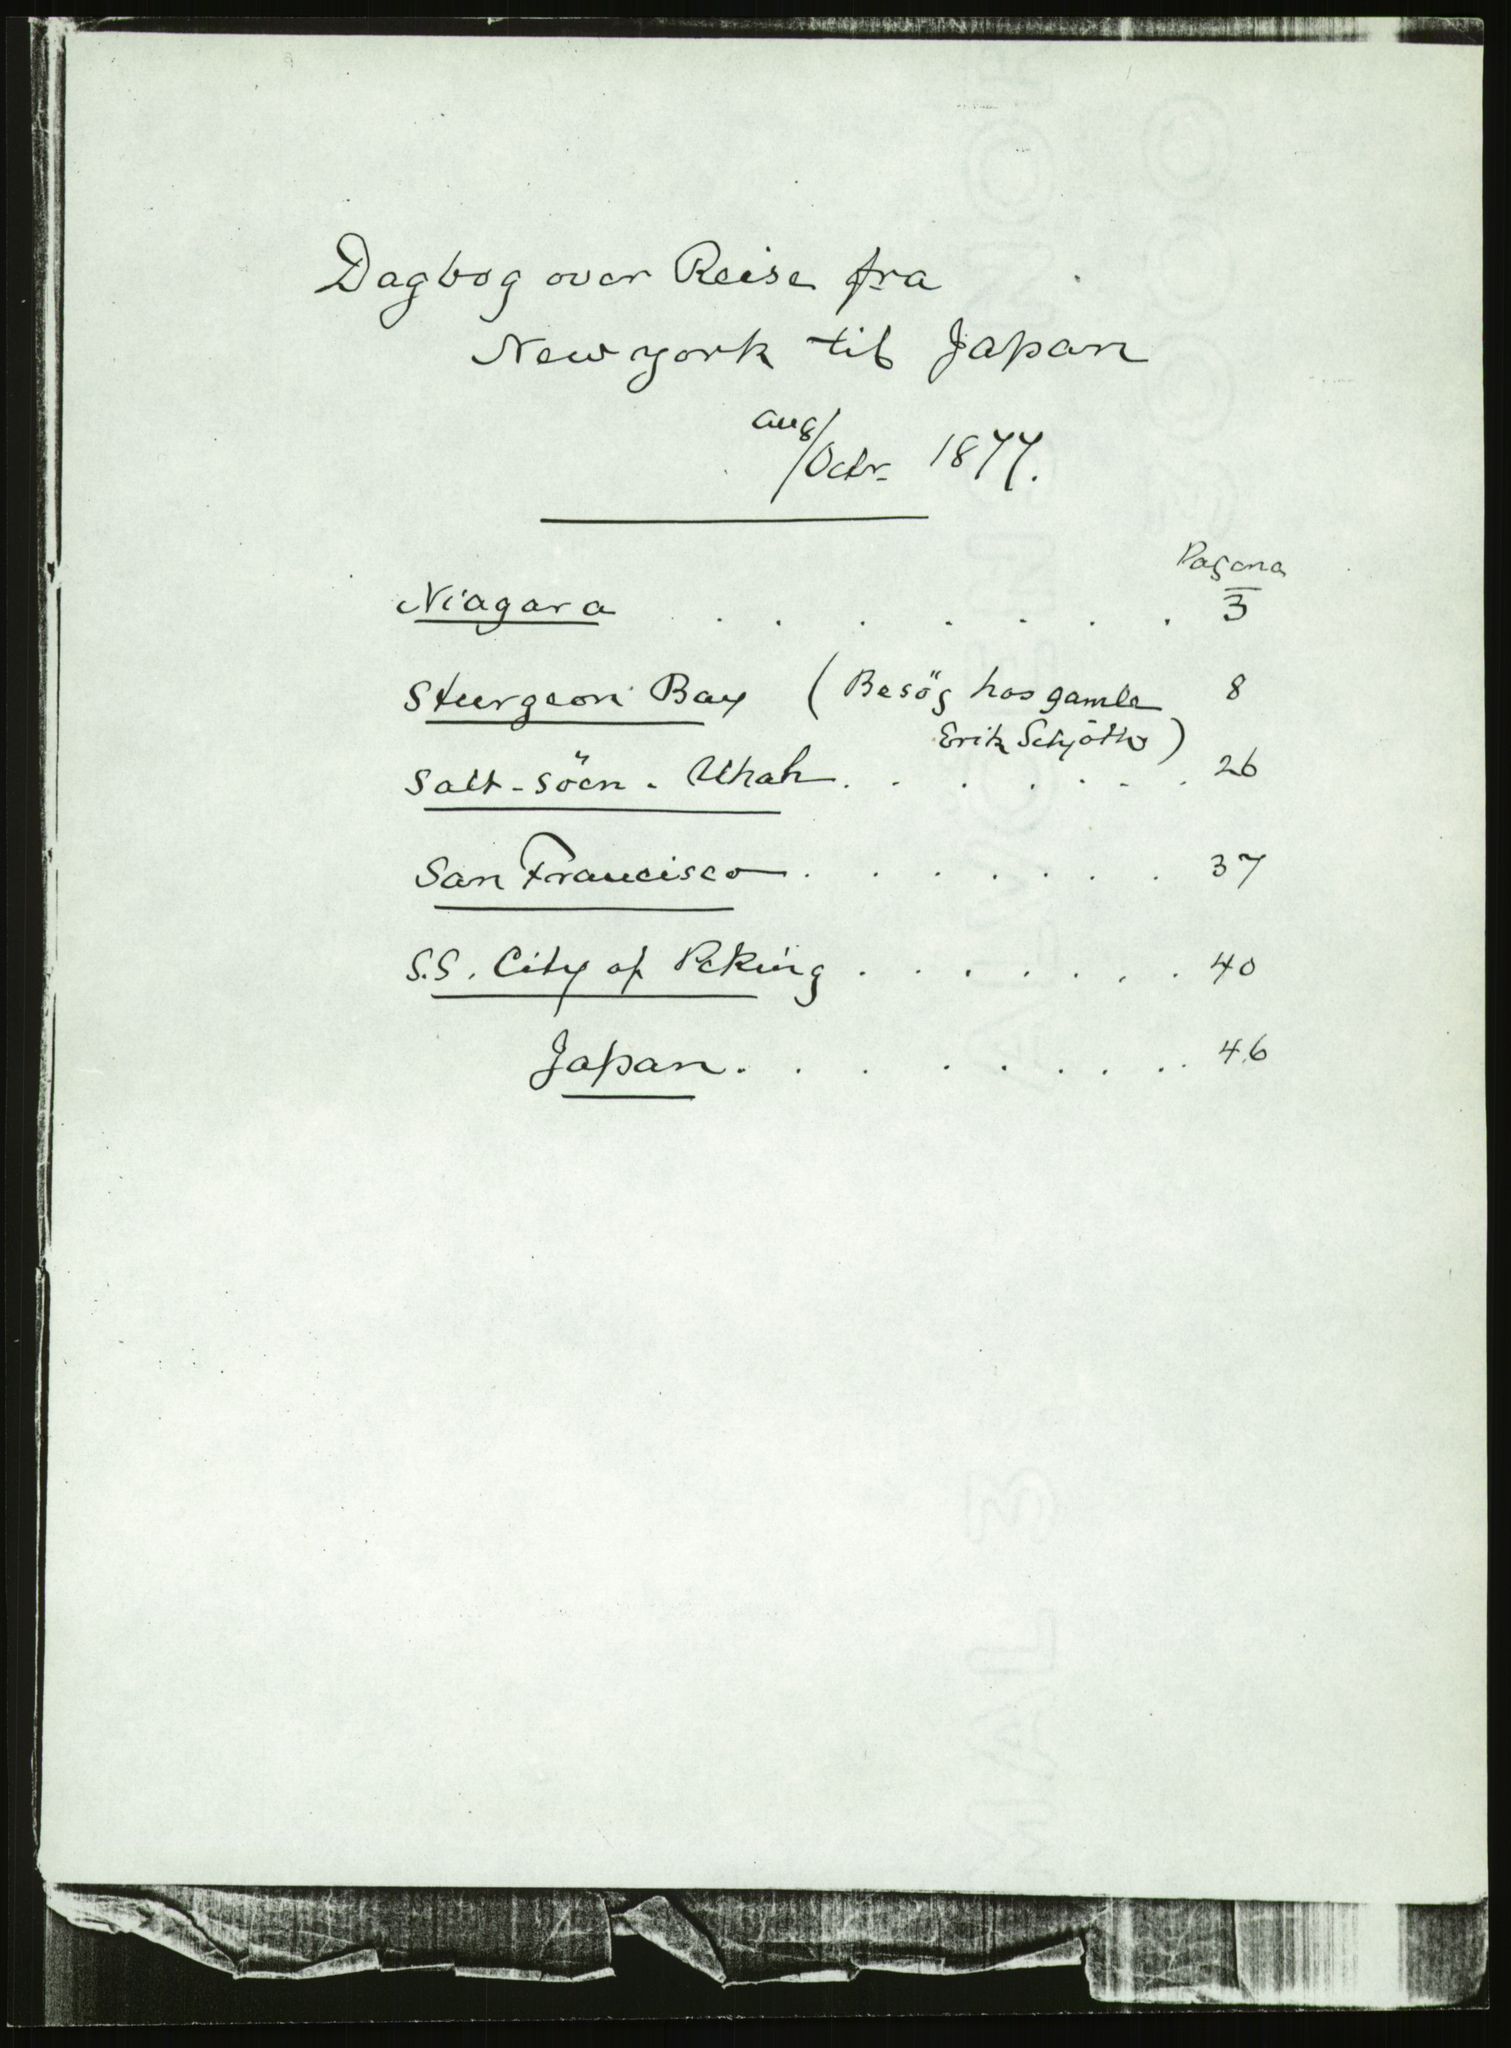 Dagbog over Reise fra
New york til Japan
aug/Octr. 1877.
Pagena
Niagara . . . . . . . 3
Sturgeon Bay (Besög hos gamle 8
Erik Schjöth)
Salt-söen. Utah . . . . . . 26
San Francisco . . . . . . . 37
S.S. City of Peking . . . . . . . 40
Japan . . . . . . . . 46